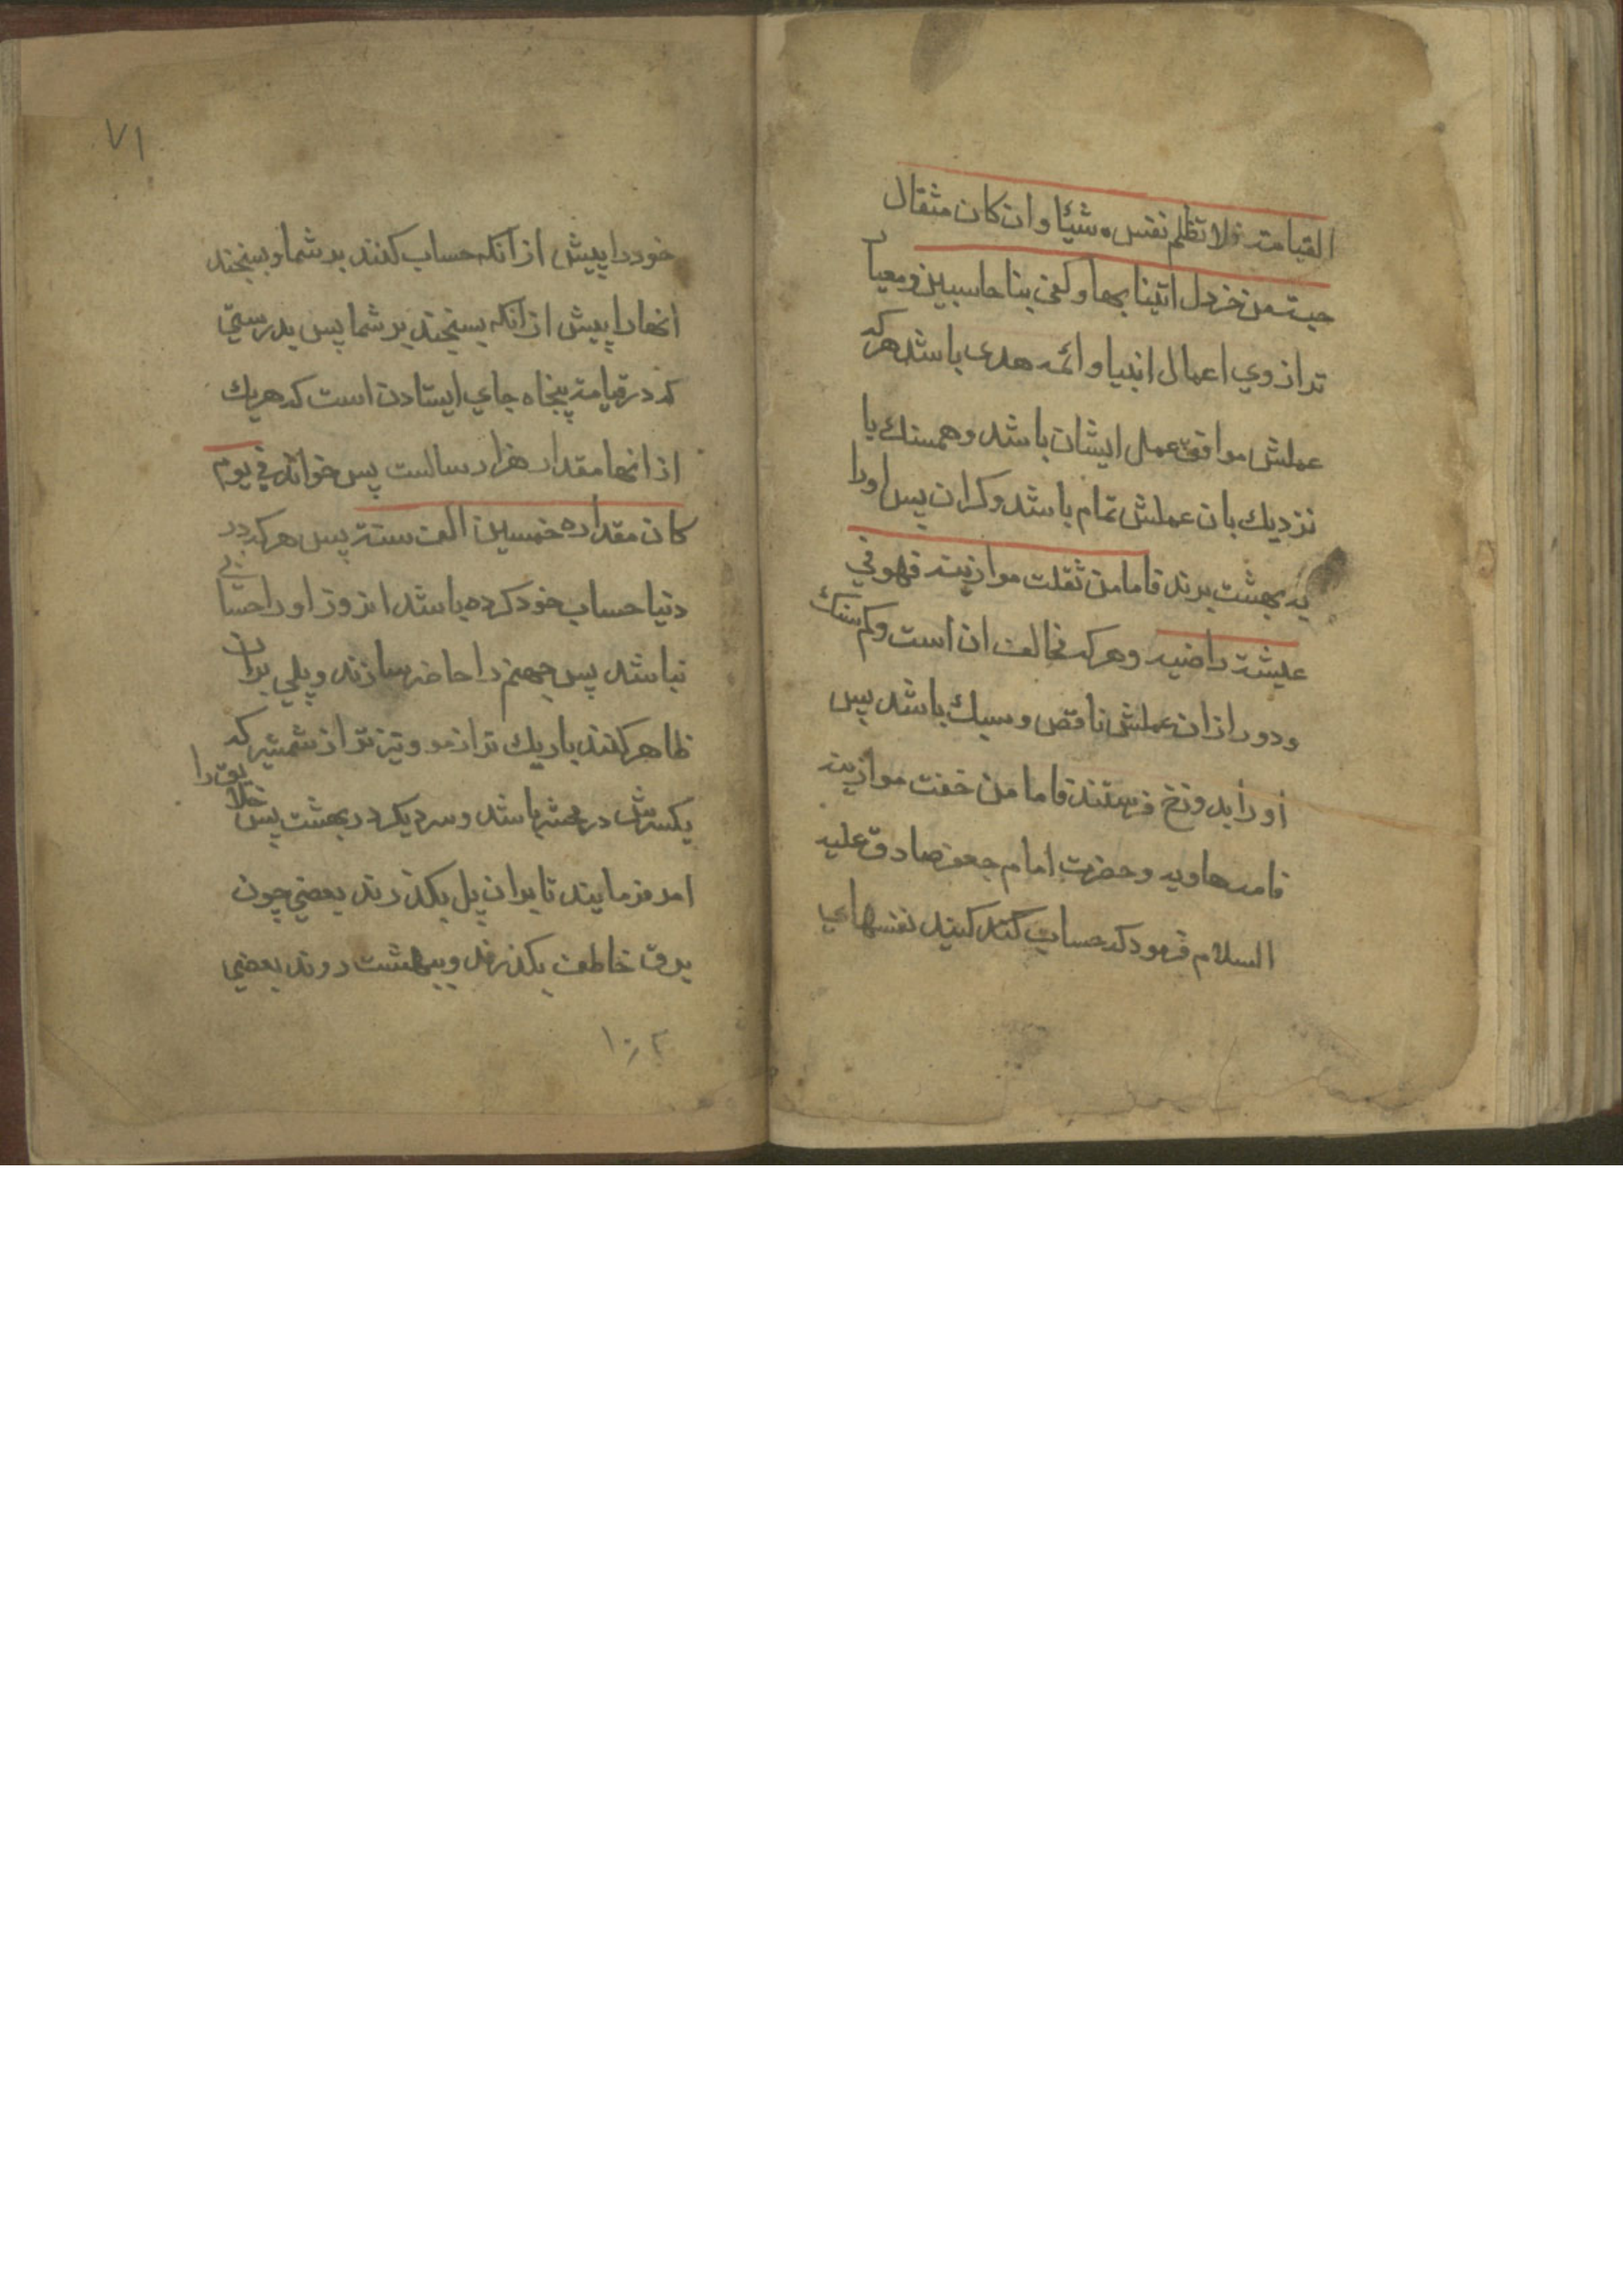 القیامة فلا تظلم نفس شیئا وان کان مثقال
حبة من خردل اتینا بها وکفی بنا حاسبین ومعیار
ترازوی اعمال انبیا وائمه هدی باشد هرکه
عملش موافق عمل ایشان باشد وهمسنك یا
نزدیك بان عملش تمام باشد وکران پس اورا
به بهشت برند فاما من ثقلت موازینه فهو فی
عیشة راضیه وهرکه مخالف ان است وکم سنك
ودور ازان عملش ناقص وسبك باشد پس
اورا بدوزخ فرستند فاما من خفت موازینه
فامه هاویه وحضرت امام جعفر صادق علیه
السلام فرمود که حساب کنید نفسهای
۷۱
خودرا پیش ازآنکه حساب کنند بر شما وبسنجند
انهارا پیش ازآنکه بسنجند بر شما پس بدرستی
که در قیامة پنجاه جای ایستادن است که هریك
ازانها مقدار هزار سالست پس خواند فی یوم
کان مقداره خمسین الف سنة پس هرکه در
دنیا حساب خود کرده باشد انروز اورا حسابی
نباشد پس جهنم را حاضر سازند وپلی بران
ظاهر کنند باریك تر از مو وتیز تر از شمشیر که
یکسرش در محشر باشد وسر دیکر در بهشت پس خلایق را
امر فرمایند تا بران پل بکذرند بعضی چون
برق خاطف بکذرند وببهشت روند بعضی